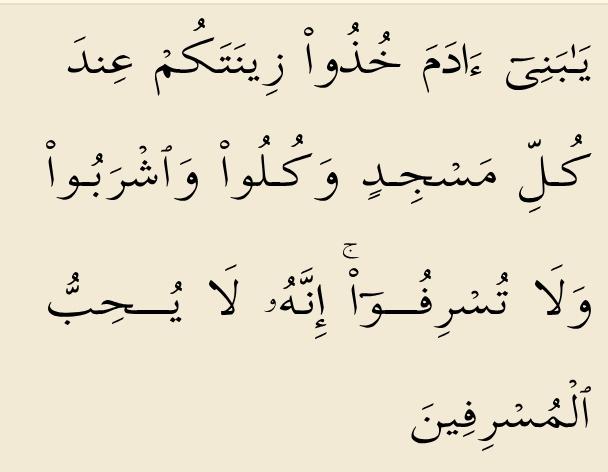 يَـٰبَنِىٓ ءَادَمَ خُذُوا۟ زِينَتَكُمْ عِندَ
كُلِّ مَسْجِدٍ وَكُلُوا۟ وَٱشْرَبُوا۟
وَلَا تُسْرِفُوٓا۟ ۚ إِنَّهُۥ لَا يُحِبُّ
ٱلْمُسْرِفِينَ